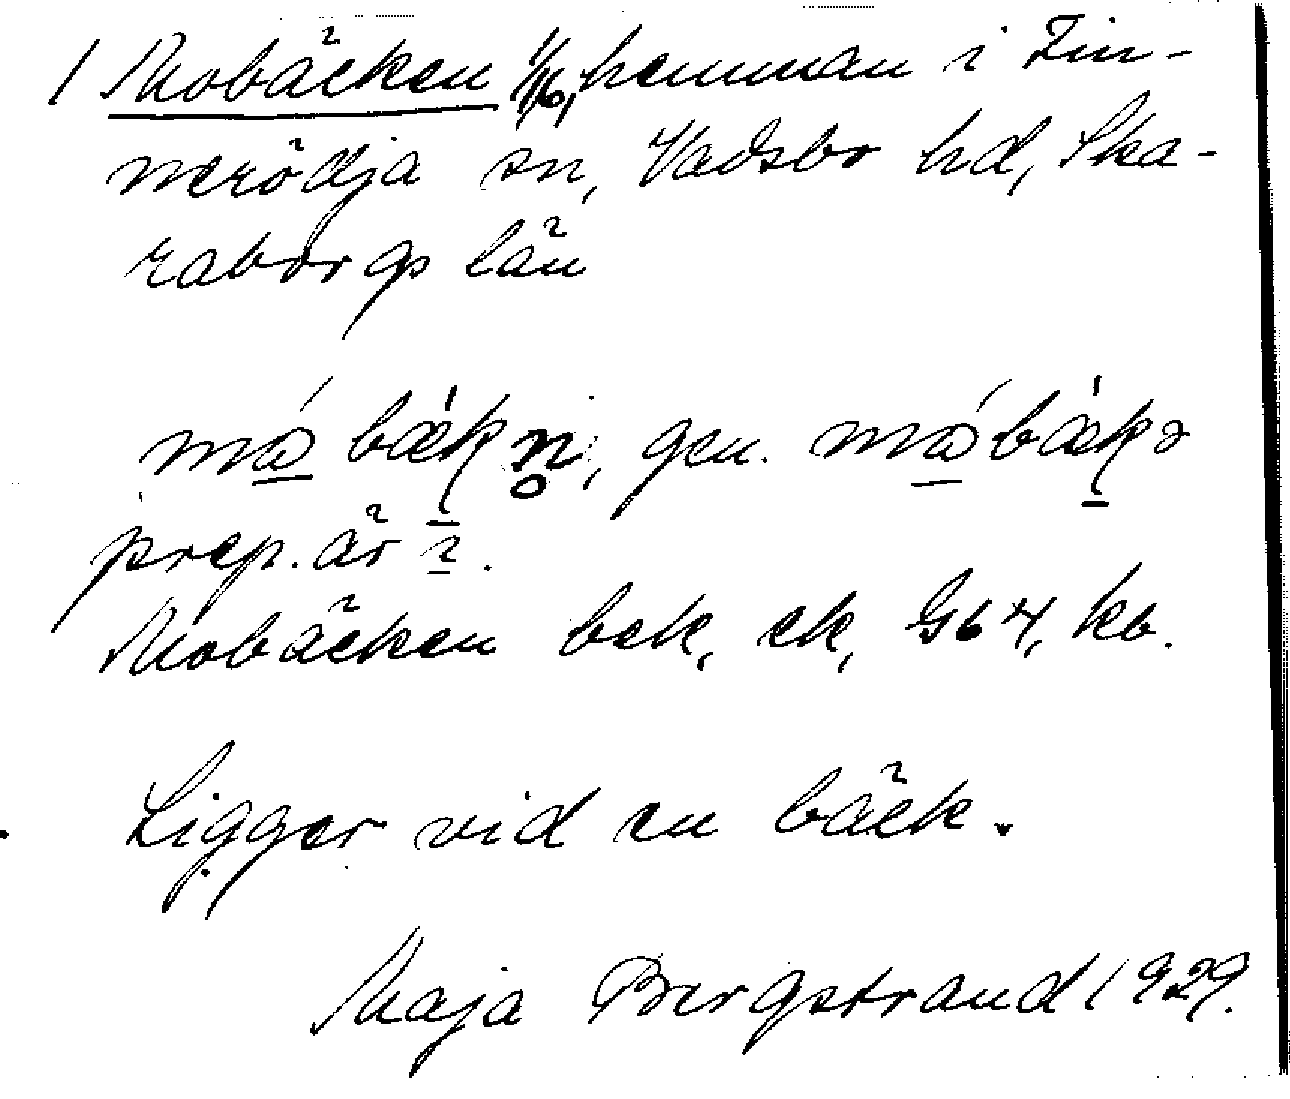 1 Mobäcken 1/16, hemman i Fin-
nerödja sn, Vadsbo hd, Ska-
raborgs län
bäkn̥, gen.
prep. är i.
Mobäcken bek, ek, G64, kb.
Ligger vid en bäck.
Maja Bergstrand 1929.